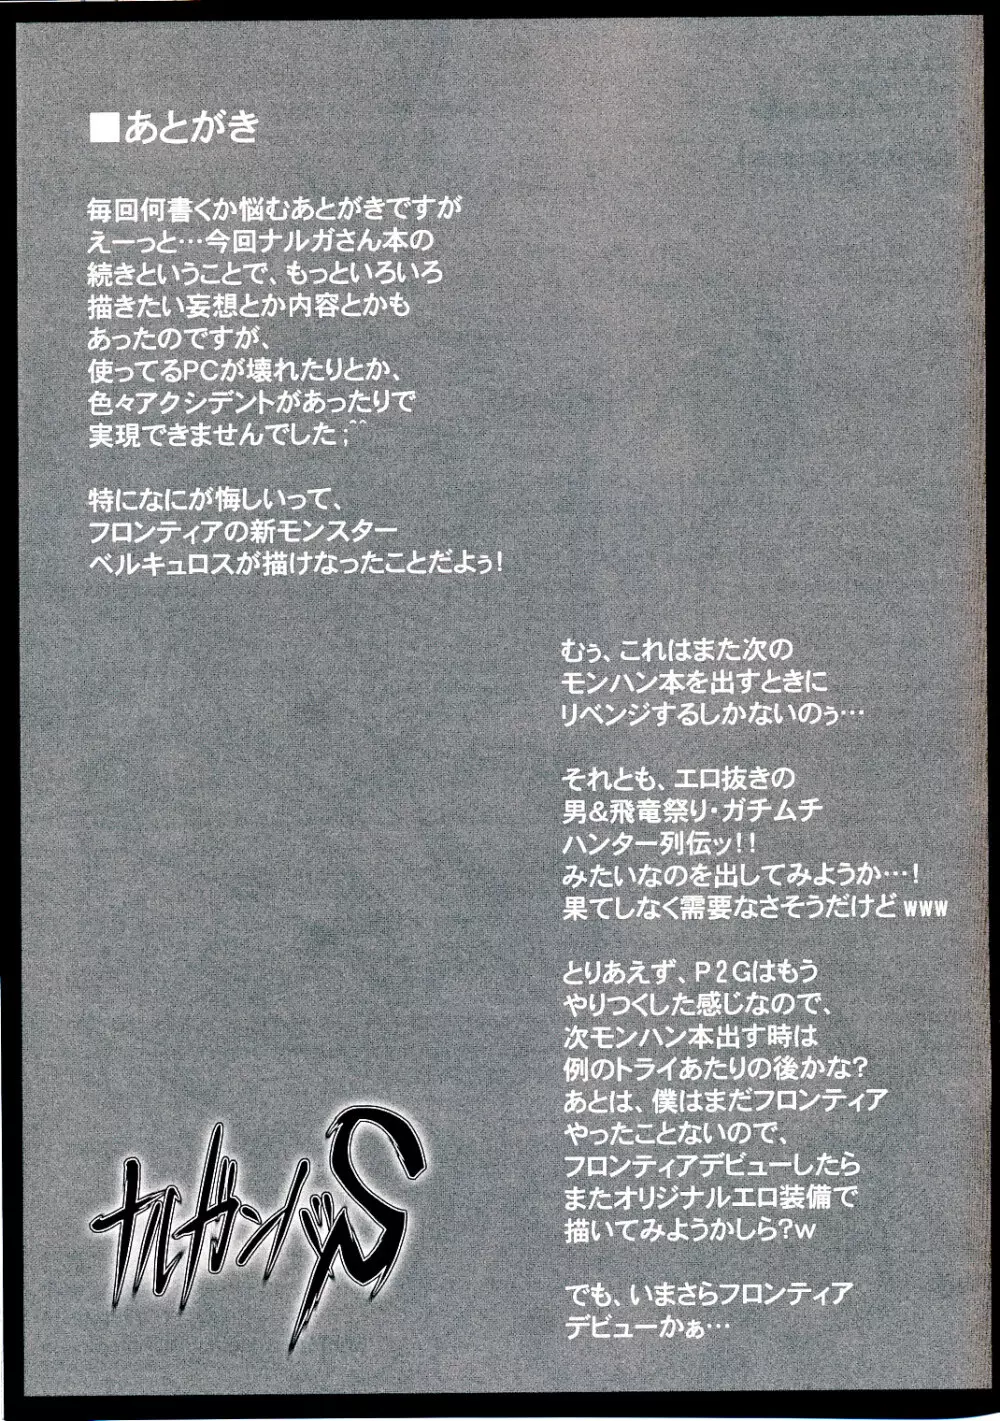 ■あとがき
毎回何書くか悩むあとがきですが
えーっと…今回ナルガさん本の
続きということで、もっといろいろ
描きたい妄想とか内容とかも
あったのですが、
使ってるPCが壊れたりとか、
色々アクシデントがあったりで
実現できませんでした;^^
特になにが悔しいって、
フロンティアの新モンスター
ベルキュロスが描けなったことだよぅ!
むぅ、これはまた次の
モンハン本を出すときに
リベンジするしかないのぅ…
それとも、エロ抜きの
男&飛竜祭り・ガチムチ
ハンター列伝ッ!!
みたいなのを出してみようか…!
果てしなく需要なさそうだけどwww
とりあえず、P2Gはもう
やりつくした感じなので、
次モンハン本出す時は
例のトライあたりの後かな?
あとは、僕はまだフロンティア
やったことないので、
フロンティアデビューしたら
またオリジナルエロ装備で
描いてみようかしら?w
でも、いまさらフロンティア
デビューかぁ…